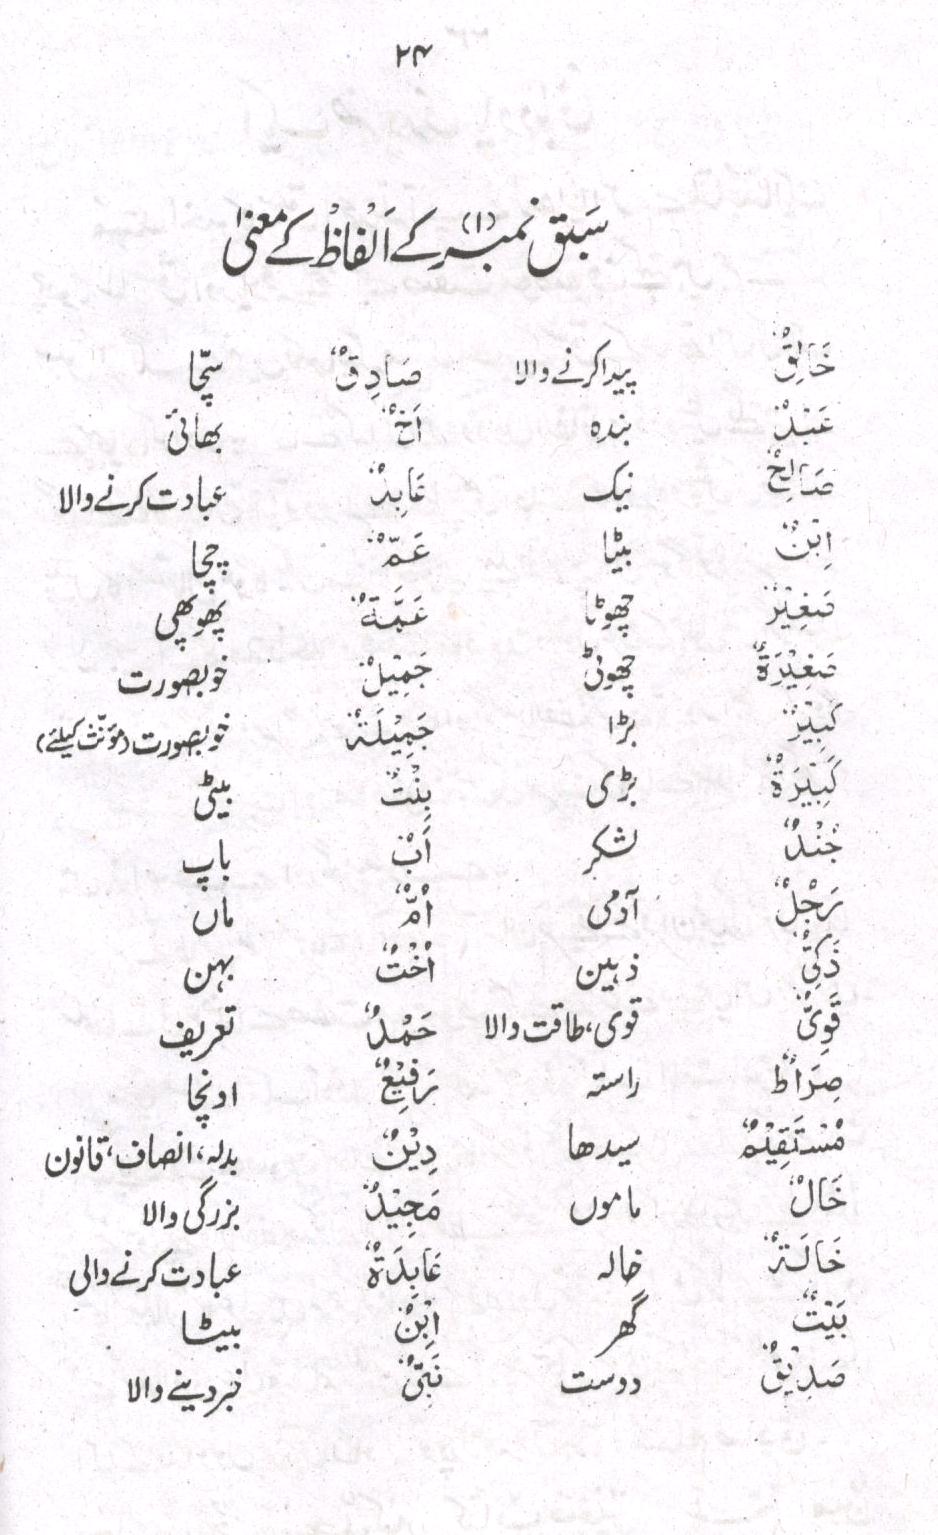 ۲۴
سَبَق نمبر (۱) کے اَلْفَاظْ کے معنیٰ
خَالِقٌ پیدا کرنے والا صَادِقٌ سچّا
عَبْدٌ بندہ اَخٌ بھائی
صَالِحٌ نیک عَابِدٌ عبادت کرنے والا
اِبْنٌ بیٹا عَمٌّ چچا
صَغِیْرٌ چھوٹا عَمَّةٌ پھوپھی
صَغِیْرَةٌ چھوٹی جَمِیْلٌ خوبصورت
کَبِیْرٌ بڑا جَمِیْلَةٌ خوبصورت (مؤنّث کیلئے)
کَبِیْرَةٌ بڑی بِنْتٌ بیٹی
جُنْدٌ لشکر اَبٌ باپ
رَجُلٌ آدمی اُمٌّ ماں
ذَکِیٌّ ذہین اُخْتٌ بہن
قَوِیٌّ قوی، طاقت والا حَمْدٌ تعریف
صِرَاطٌ راستہ رَفِیْعٌ اونچا
مُسْتَقِیْمٌ سیدھا دِیْنٌ بدلہ، انصاف، قانون
خَالٌ ماموں مَجِیْدٌ بزرگی والا
خَالَةٌ خالہ عَابِدَةٌ عبادت کرنے والی
بَیْتٌ گھر اِبْنٌ بیٹا
صَدِیْقٌ دوست نَبِیٌّ خبر دینے والا